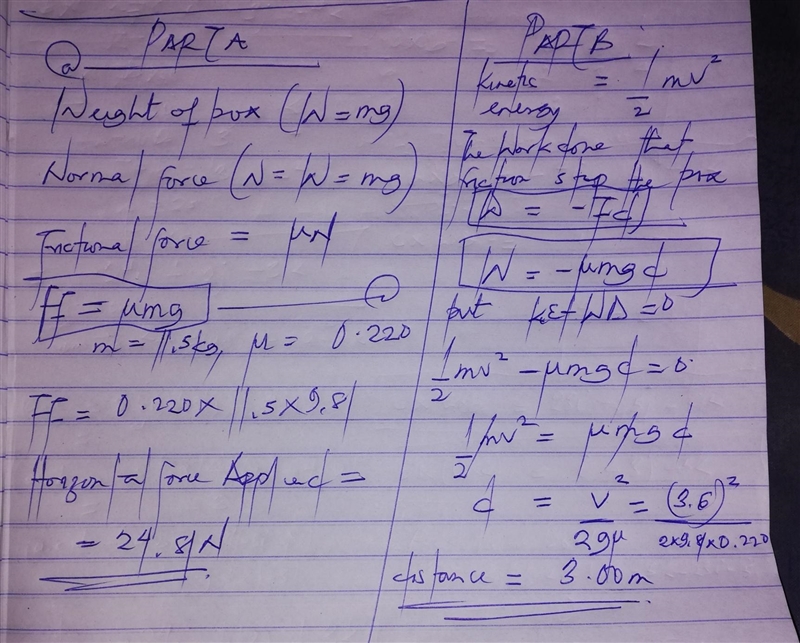 PART A
a
Weight of box (W = mg)
Normal force (N = W = mg)
Frictional force = μN
Ff = μmg
m = 11.5kg, μ = 0.220
Ff = 0.220 x 11.5 x 9.81
Horizontal force Applied =
= 24.81N
PART B
Kinetic energy = 1/2 mv²
The Work done that
friction stop the box
W = -Fd
W = -μmgd
but K.E + WD = 0
1/2 mv² - μmgd = 0
1/2 mv² = μmgd
d = v²/2gμ = (3.6)²/2x9.81x0.220
distance = 3.00m